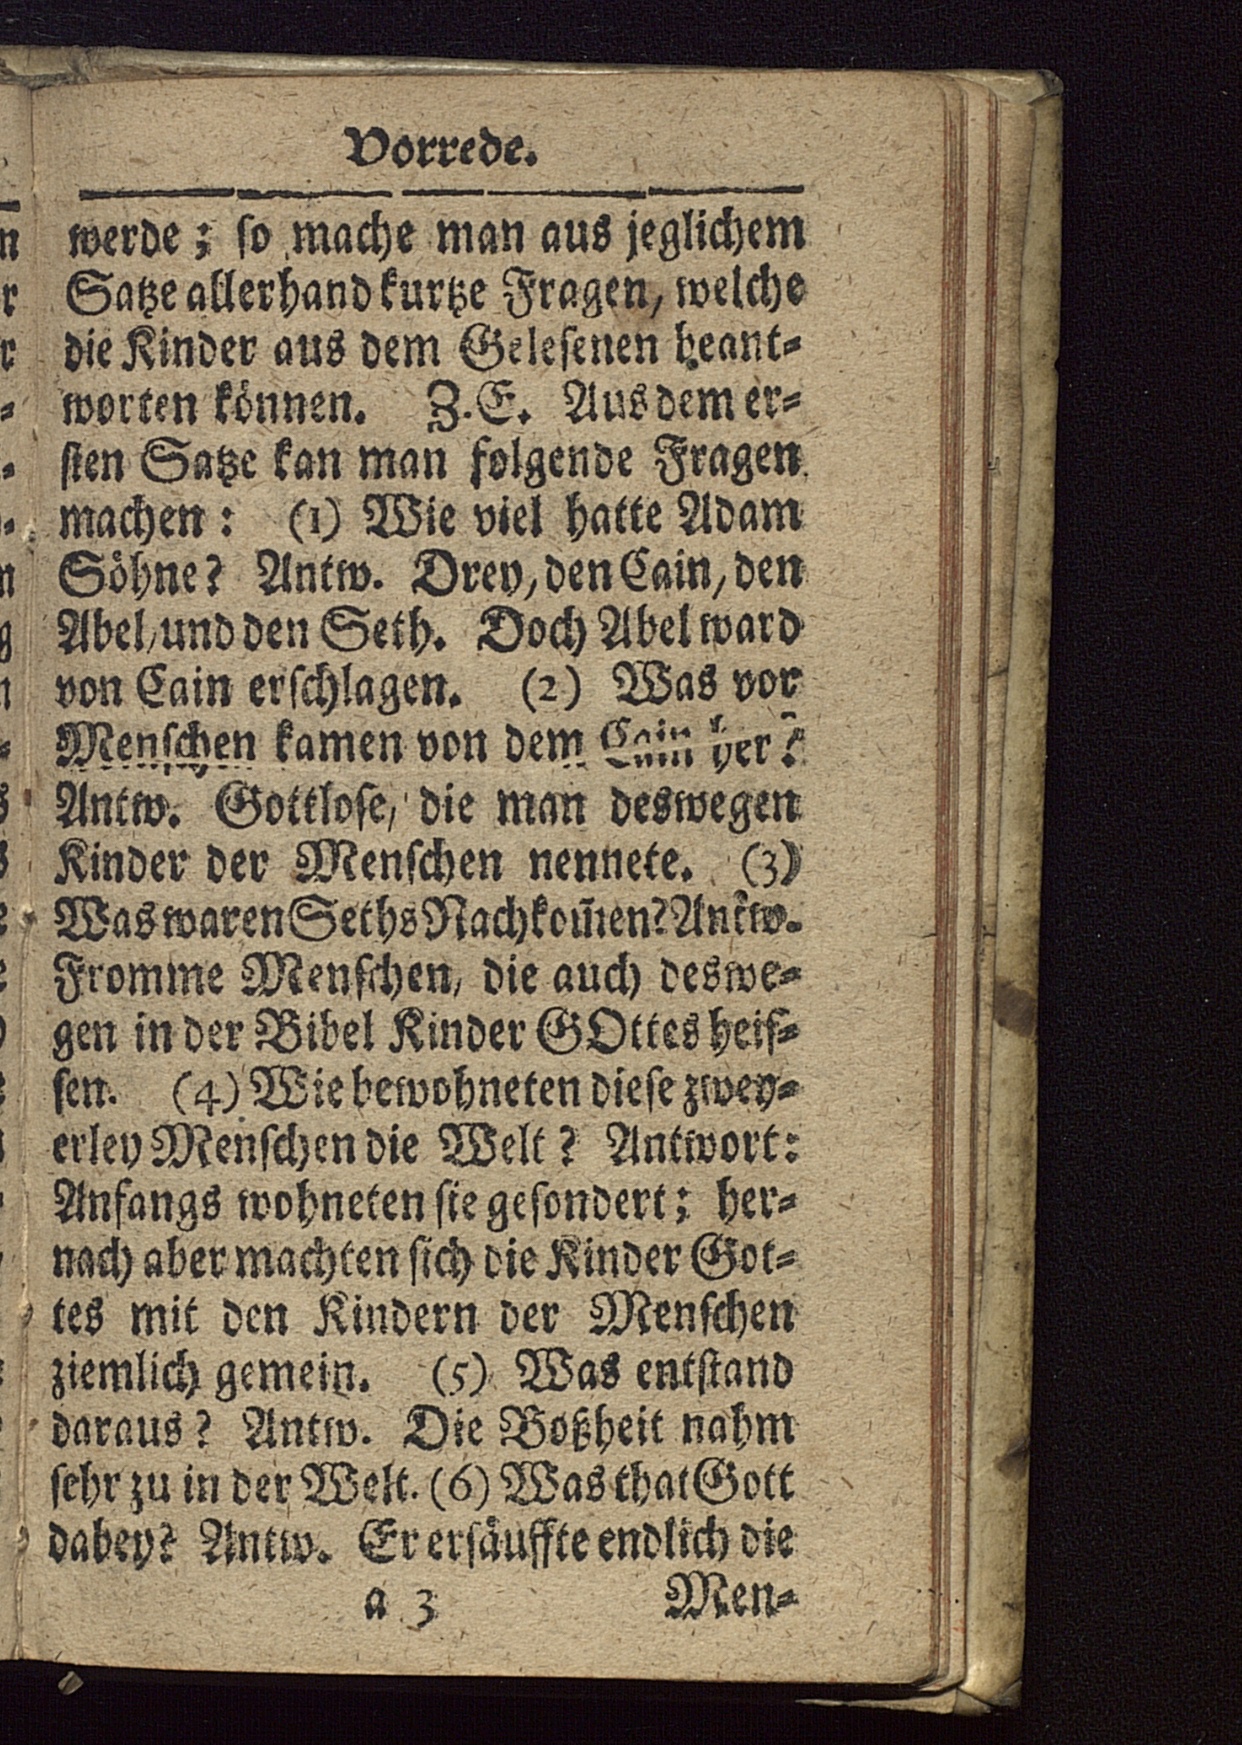 Vorrede.
werde; ſo mache man aus jeglichem
Satze allerhand kurtze Fragen, welche
die Kinder aus dem Geleſenen beant-
worten können. Z.E. Aus dem er-
ſten Satze kan man folgende Fragen
machen: (1) Wie viel hatte Adam
Söhne? Antw. Drey, den Cain, den
Abel, und den Seth. Doch Abel ward
von Cain erſchlagen. (2) Was vor
Menſchen kamen von dem Cain her?
Antw. Gottloſe, die man deswegen
Kinder der Menſchen nennete. (3)
Was waren Seths Nachkom̃en? Antw.
Fromme Menſchen, die auch deswe-
gen in der Bibel Kinder GOttes heiſ-
ſen. (4) Wie bewohneten dieſe zwey-
erley Menſchen die Welt? Antwort:
Anfangs wohneten ſie geſondert; her-
nach aber machten ſich die Kinder Got-
tes mit den Kindern der Menſchen
ziemlich gemein. (5) Was entſtand
daraus? Antw. Die Boßheit nahm
ſehr zu in der Welt. (6) Was that Gott
dabey? Antw. Er erſäuffte endlich die
a 3 Men-